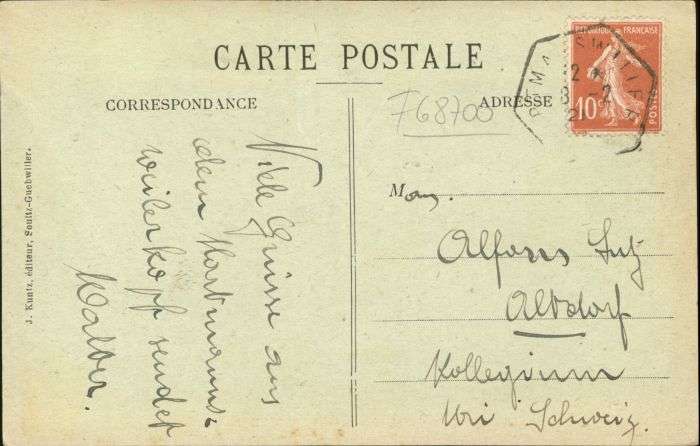 CARTE POSTALE
CORRESPONDANCE
ADRESSE
F68700
REPUBLIQUE FRANÇAISE
10c
POSTES
Viele Grüsse aus
dem Hartmanns-
weilerkopf sendet
Walter.
Mon
Alfons Lutz
Altdorf
Kollegium
Uri Schweiz.
J. Kuntz, éditeur, Soultz-Guebwiller.